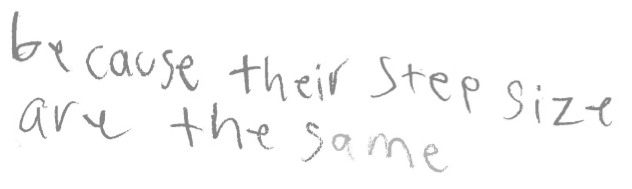 because their step size
are the same